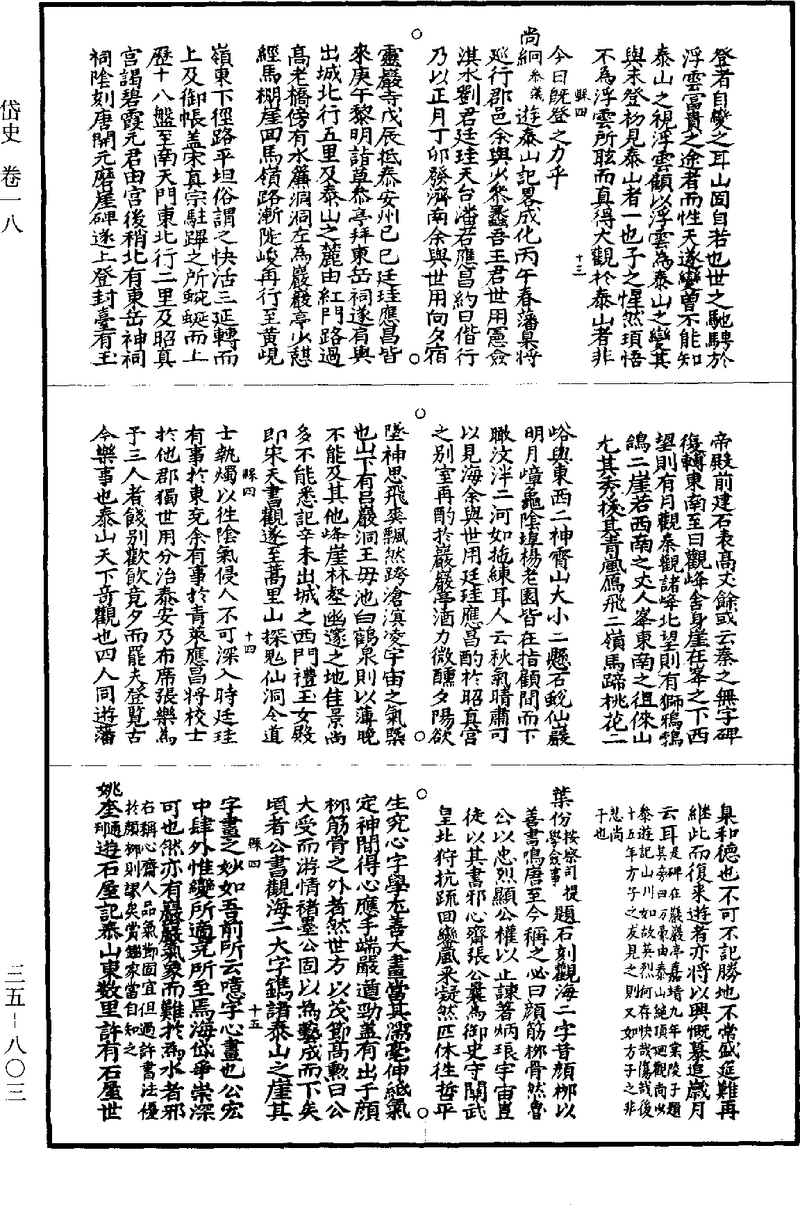 岱史 卷一八
登者自變之耳山固自若也世之馳騁於
浮雲富貴之途者而性天遂變曾不能知
泰山之視浮雲顧以浮雲為泰山之變其
與未登初見泰山者一也子之惺然頊悟
不為浮雲所眩而真得大觀於泰山者非
縣四 十三
今日旣登之力乎
尚絅叅議遊泰山記畧成化丙午春藩臬將
廵行郡邑余與少叅蠡吾王君世用憲僉
淇水劉君廷珪天台潘君應昌約日偕行
乃以正月丁卯發濟南余與世用向夕宿
靈巖寺戊辰抵泰安州已巳廷珪應昌皆
來庚午黎明詣草叅亭拜東岳祠遂肩輿
出城北行五里及泰山之麓由紅門路過
高老橋傍有水簾洞洞左為巖巖亭少憇
經馬棚崖回馬嶺路漸陡峻再行至黃峴
嶺東下徑路平坦俗謂之快活三延轉而
上及御帳盖宋真宗駐蹕之所蜿蜒而上
歷十八盤至南天門東北行二里及昭真
宮謁碧霞元君由宮後稍北有東岳神祠
祠陰刻唐開元磨崖碑遂上登封臺有玉
帝殿前建石表高丈餘或云秦之無字碑
復轉東南至日觀峰舍身崖在峯之下西
望則有月觀秦觀諸峰北望則有獅鴉鵓
鴿二崖若西南之丈人峯東南之徂徠山
尤其秀拔其青嵐鴈飛二嶺馬蹄桃花二
峪與東西二神霄山大小二懸石蛻仙巖
明月嶂龜陰埠楊老園皆在指顧間而下
瞰汶泮二河如拖練耳人云秋氣晴肅可
以見海余與世用廷珪應昌酌於昭真宮
之別室再酌於巖巖亭酒力微醺夕陽欲
墜神思飛爽飄然跨滄溟凌宇宙之氣槩
也山下有呂巖洞王毋池白鶴泉則以薄晚
不能及其他峰崖林壑幽邃之地佳景尚
多不能悉記辛未出城之西門禮玉女殿
即宋天書觀遂至蒿里山探鬼仙洞令道
士執燭以徃陰氣侵人不可深入時廷珪
縣四 十四
有事於東兗余有事於青萊應昌將校士
於他郡獨世用分治泰安乃布席張樂為
予三人者餞別歡飲竟夕而罷夫登覧古
今樂事也泰山天下竒觀也四人同遊藩
臬和德也不可不記勝地不常盛筵難再
継此而復來遊者亦將以興慨慕追歲月
云耳是碑在巖巖亭嘉靖九年棠陵子題
其旁曰方豪由泰山絶頂廻觀尚
叅遊記山川如故英烈何存快哉傷哉後
十五年方子之友見之則又如方子之非
悲尚
子也
葉份按察司提學僉事題石刻觀海二字昔顏栁以
善書鳴唐至今稱之必曰顏筋栁骨然魯
公以忠烈顯公權以止諫著炳琅宇宙豈
徒以其書邪心齋張公曩為御史守關武
皇北狩抗疏回鑾風采凝然匹休徃哲平
生究心字學尤善大畫當其濡毫伸紙氣
定神閒得心應手端嚴遒勁盖有出于顏
栁筋骨之外者然世方以茂節高勲曰公
大受而游情褚墨公固以為藝成而下矣
頃者公書觀海二大字鐫諸泰山之崖其
縣四 十五
字畫之妙如吾前所云噫字心畫也公宏
中肆外惟變所適竟所至焉海岱爭崇深
可也然亦有巖巖氣象而難於為水者邪
右稱心齋人品氣節固宜但過許書法優
於顏栁則諛矣賞鑑家當自知之
姚奎通判遊石屋記泰山東数里許有石屋世
三五-八〇三